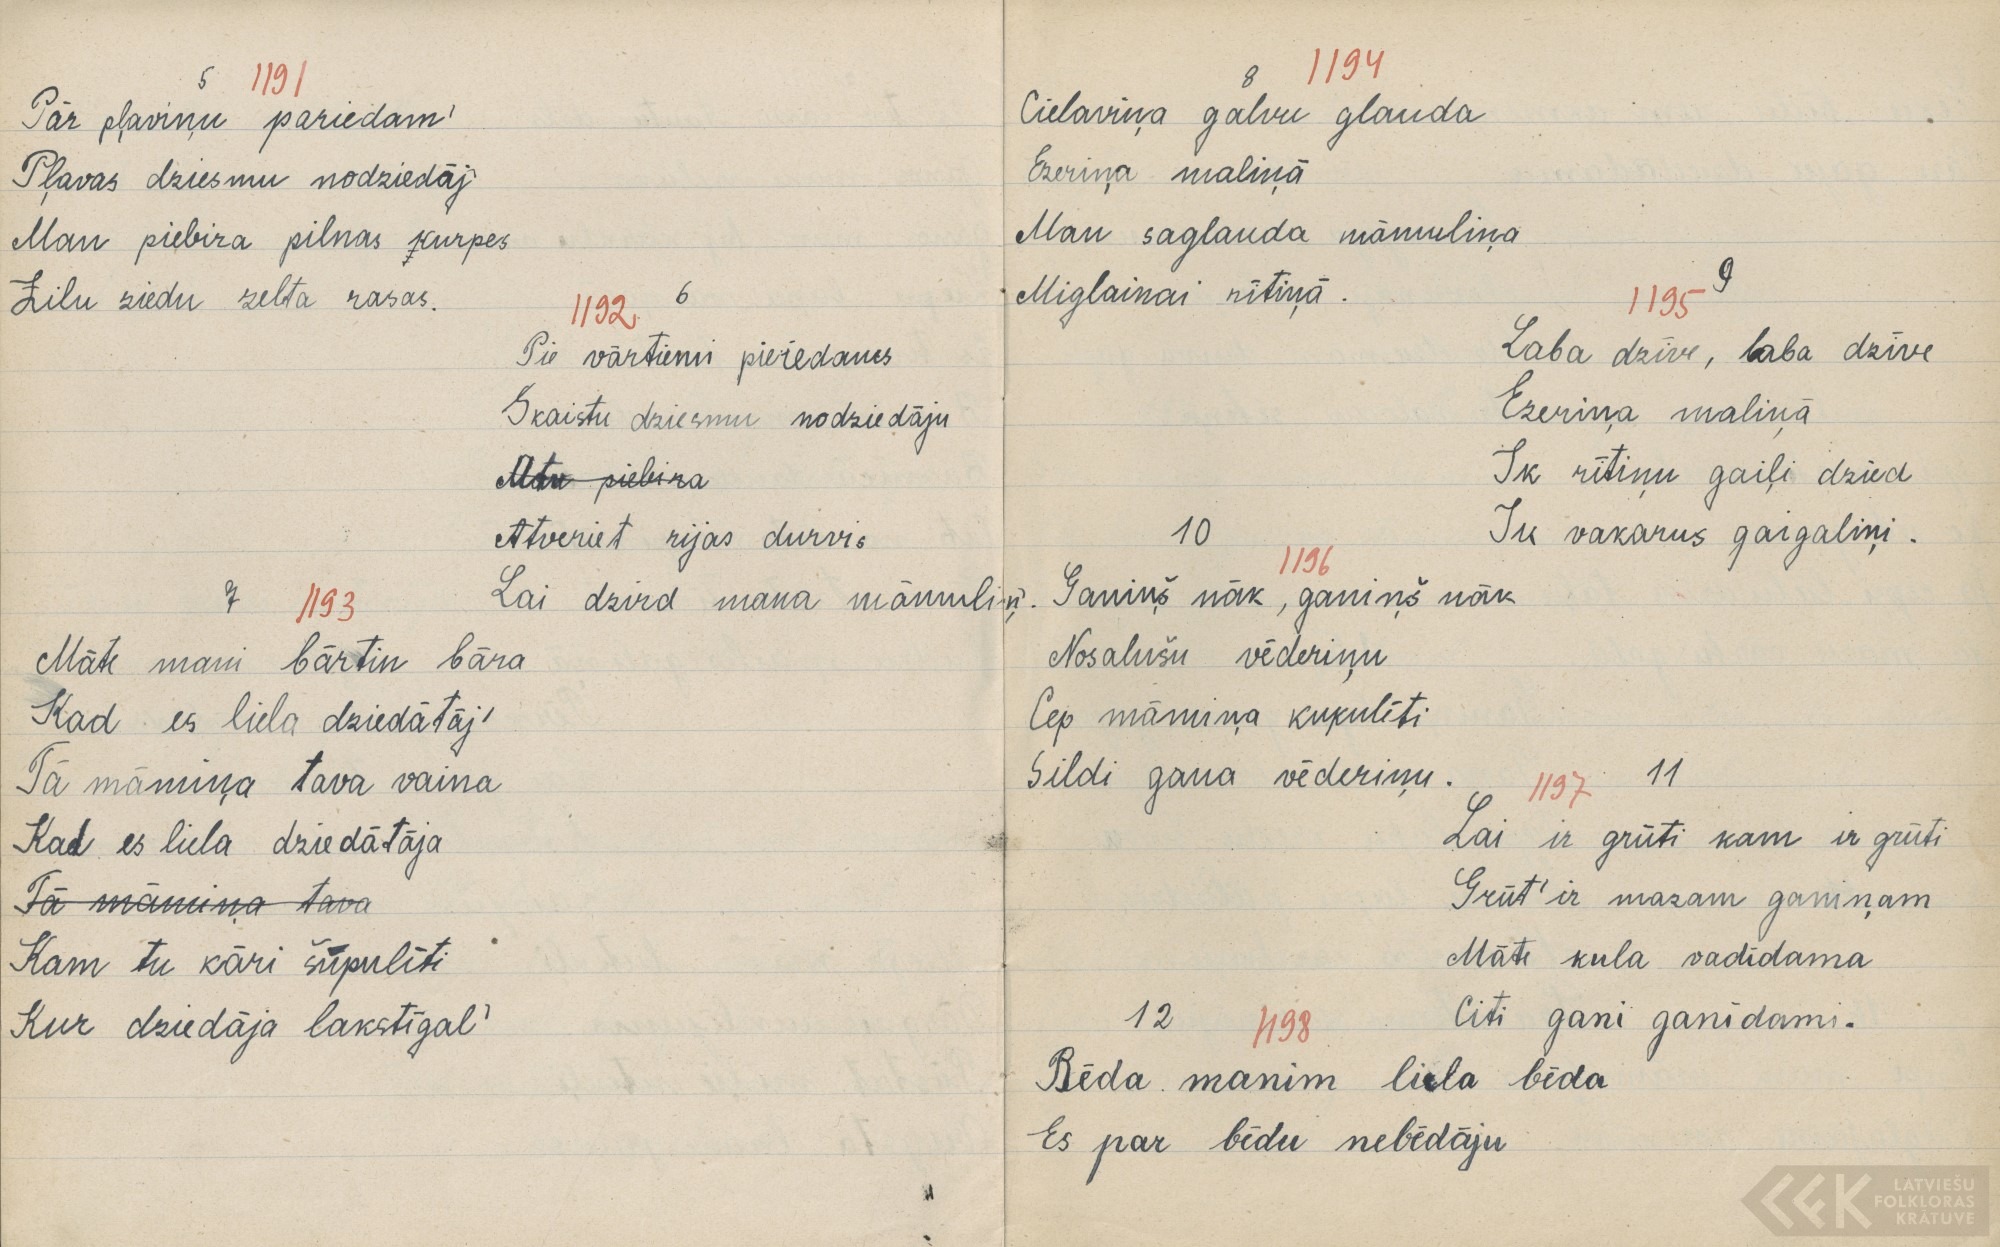 5 1191
Pār pļaviņu pariedam'
Pļavas dziesmu nodziedāj'
Man piebira pilnas kurpes
Zilu ziedu zelta rasas.
1192. 6
Pie vārtiemi pieiedams
Skaistu dziesmu nodziedāju
Man piebira
Atveriet rijas durvis
Lai dzird mana māmuliņ.
7 1193
Māte mani bārtin bāra
Kad es liela dziedātāj'
Tā māmiņa tava vaina
Kad es liela dziedātāja
Tā māmiņa tava
Kam tu kāri šūpulīti
Kur dziedāja lakstīgal'
8 1194
Cielaviņa galvu glauda
Ezeriņa maliņā
Man saglauda māmuliņa
Miglainai rītiņā.
1195 9
Laba dzīve, laba dzīve
Ezeriņa maliņā
Ik rītiņu gaiļi dzied
Ik vakarus gaigaliņi.
10 1196
Ganiņš nāk, ganiņš nāk
Nosalušu vēderiņu
Cep māmiņa kukulīti
Sildi gana vēderiņu.
1197 11
Lai ir grūti kam ir grūti
Grūt' ir mazam ganiņam
Māte kula vadīdama
Citi gani ganīdami.
12 1198
Bēda manim liela bēda
Es par bēdu nebēdāju
LATVIEŠU
FOLKLORAS
KRĀTUVE